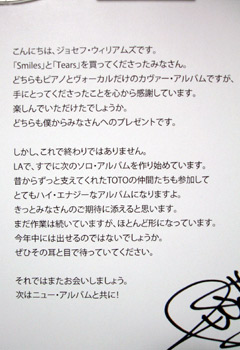 こんにちは、ジョセフ・ウィリアムズです。
「Smiles」と「Tears」を買ってくださったみなさん。
どちらもピアノとヴォーカルだけのカヴァー・アルバムですが、
手にとってくださったことを心から感謝しています。
楽しんでいただけたでしょうか。
どちらも僕からみなさんへのプレゼントです。
しかし、これで終わりではありません。
LAで、すでに次のソロ・アルバムを作り始めています。
昔からずっと支えてくれたTOTOの仲間たちも参加して
とてもハイ・エナジーなアルバムになりますよ。
きっとみなさんのご期待に添えると思います。
まだ作業は続いていますが、ほとんど形になっています。
今年中には出せるのではないでしょうか。
ぜひその耳と目で待っていてください。
それではまたお会いしましょう。
次はニュー・アルバムと共に！